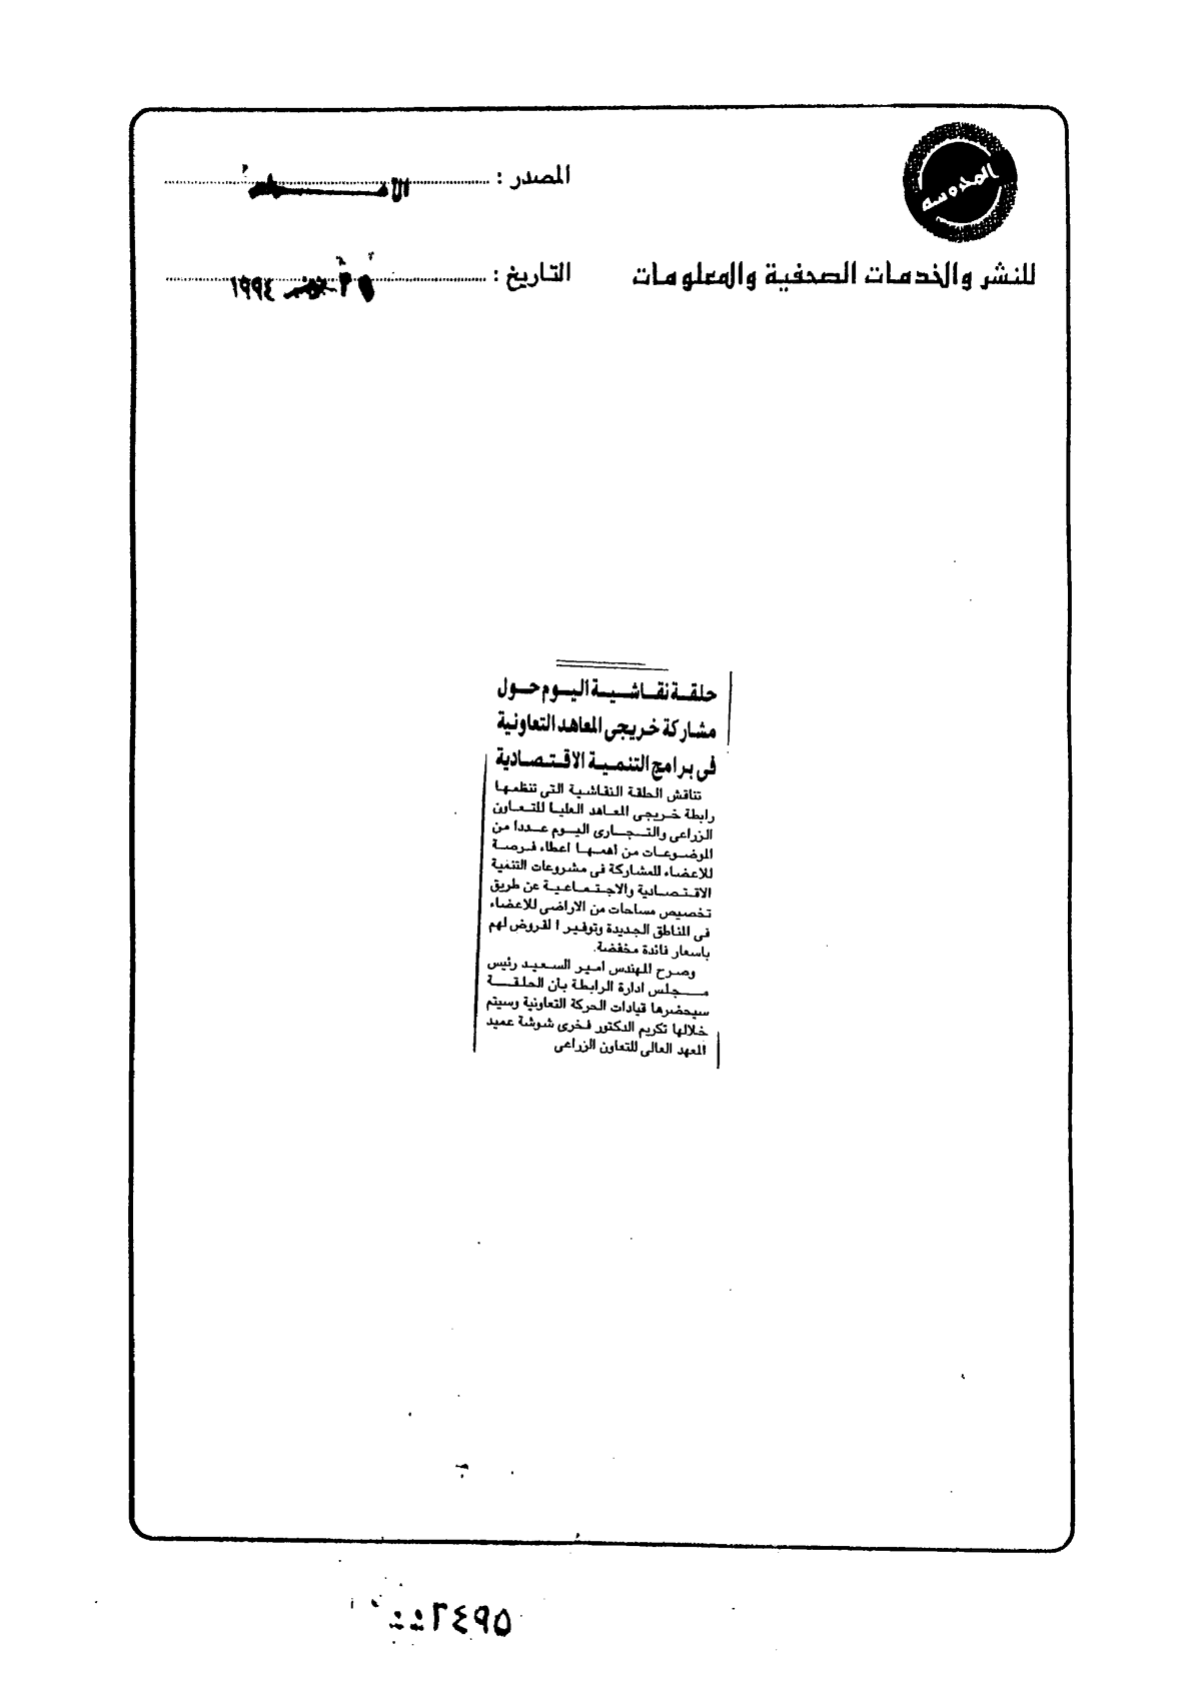 المحروسة
المصدر :
للنشر والخدمات الصحفية والمعلومات
التاريخ : ١٩٩٤
حلقة نقاشية اليوم حول
مشاركة خريجى المعاهد التعاونية
فى برامج التنمية الاقتصادية
تناقش الحلقة النقاشية التى تنظمها
رابطة خريجى المعاهد العليا للتعاون
الزراعى والتجارى اليوم عددا من
الموضوعات من أهمها اعطاء فرصة
للاعضاء للمشاركة فى مشروعات التنمية
الاقتصادية والاجتماعية عن طريق
تخصيص مساحات من الاراضى للاعضاء
فى المناطق الجديدة وتوفير القروض لهم
باسعار فائدة مخفضة.
وصرح المهندس امير السعيد رئيس
مجلس ادارة الرابطة بان الحلقة
سيحضرها قيادات الحركة التعاونية وسيتم
خلالها تكريم الدكتور فخرى شوشة عميد
المعهد العالى للتعاون الزراعى